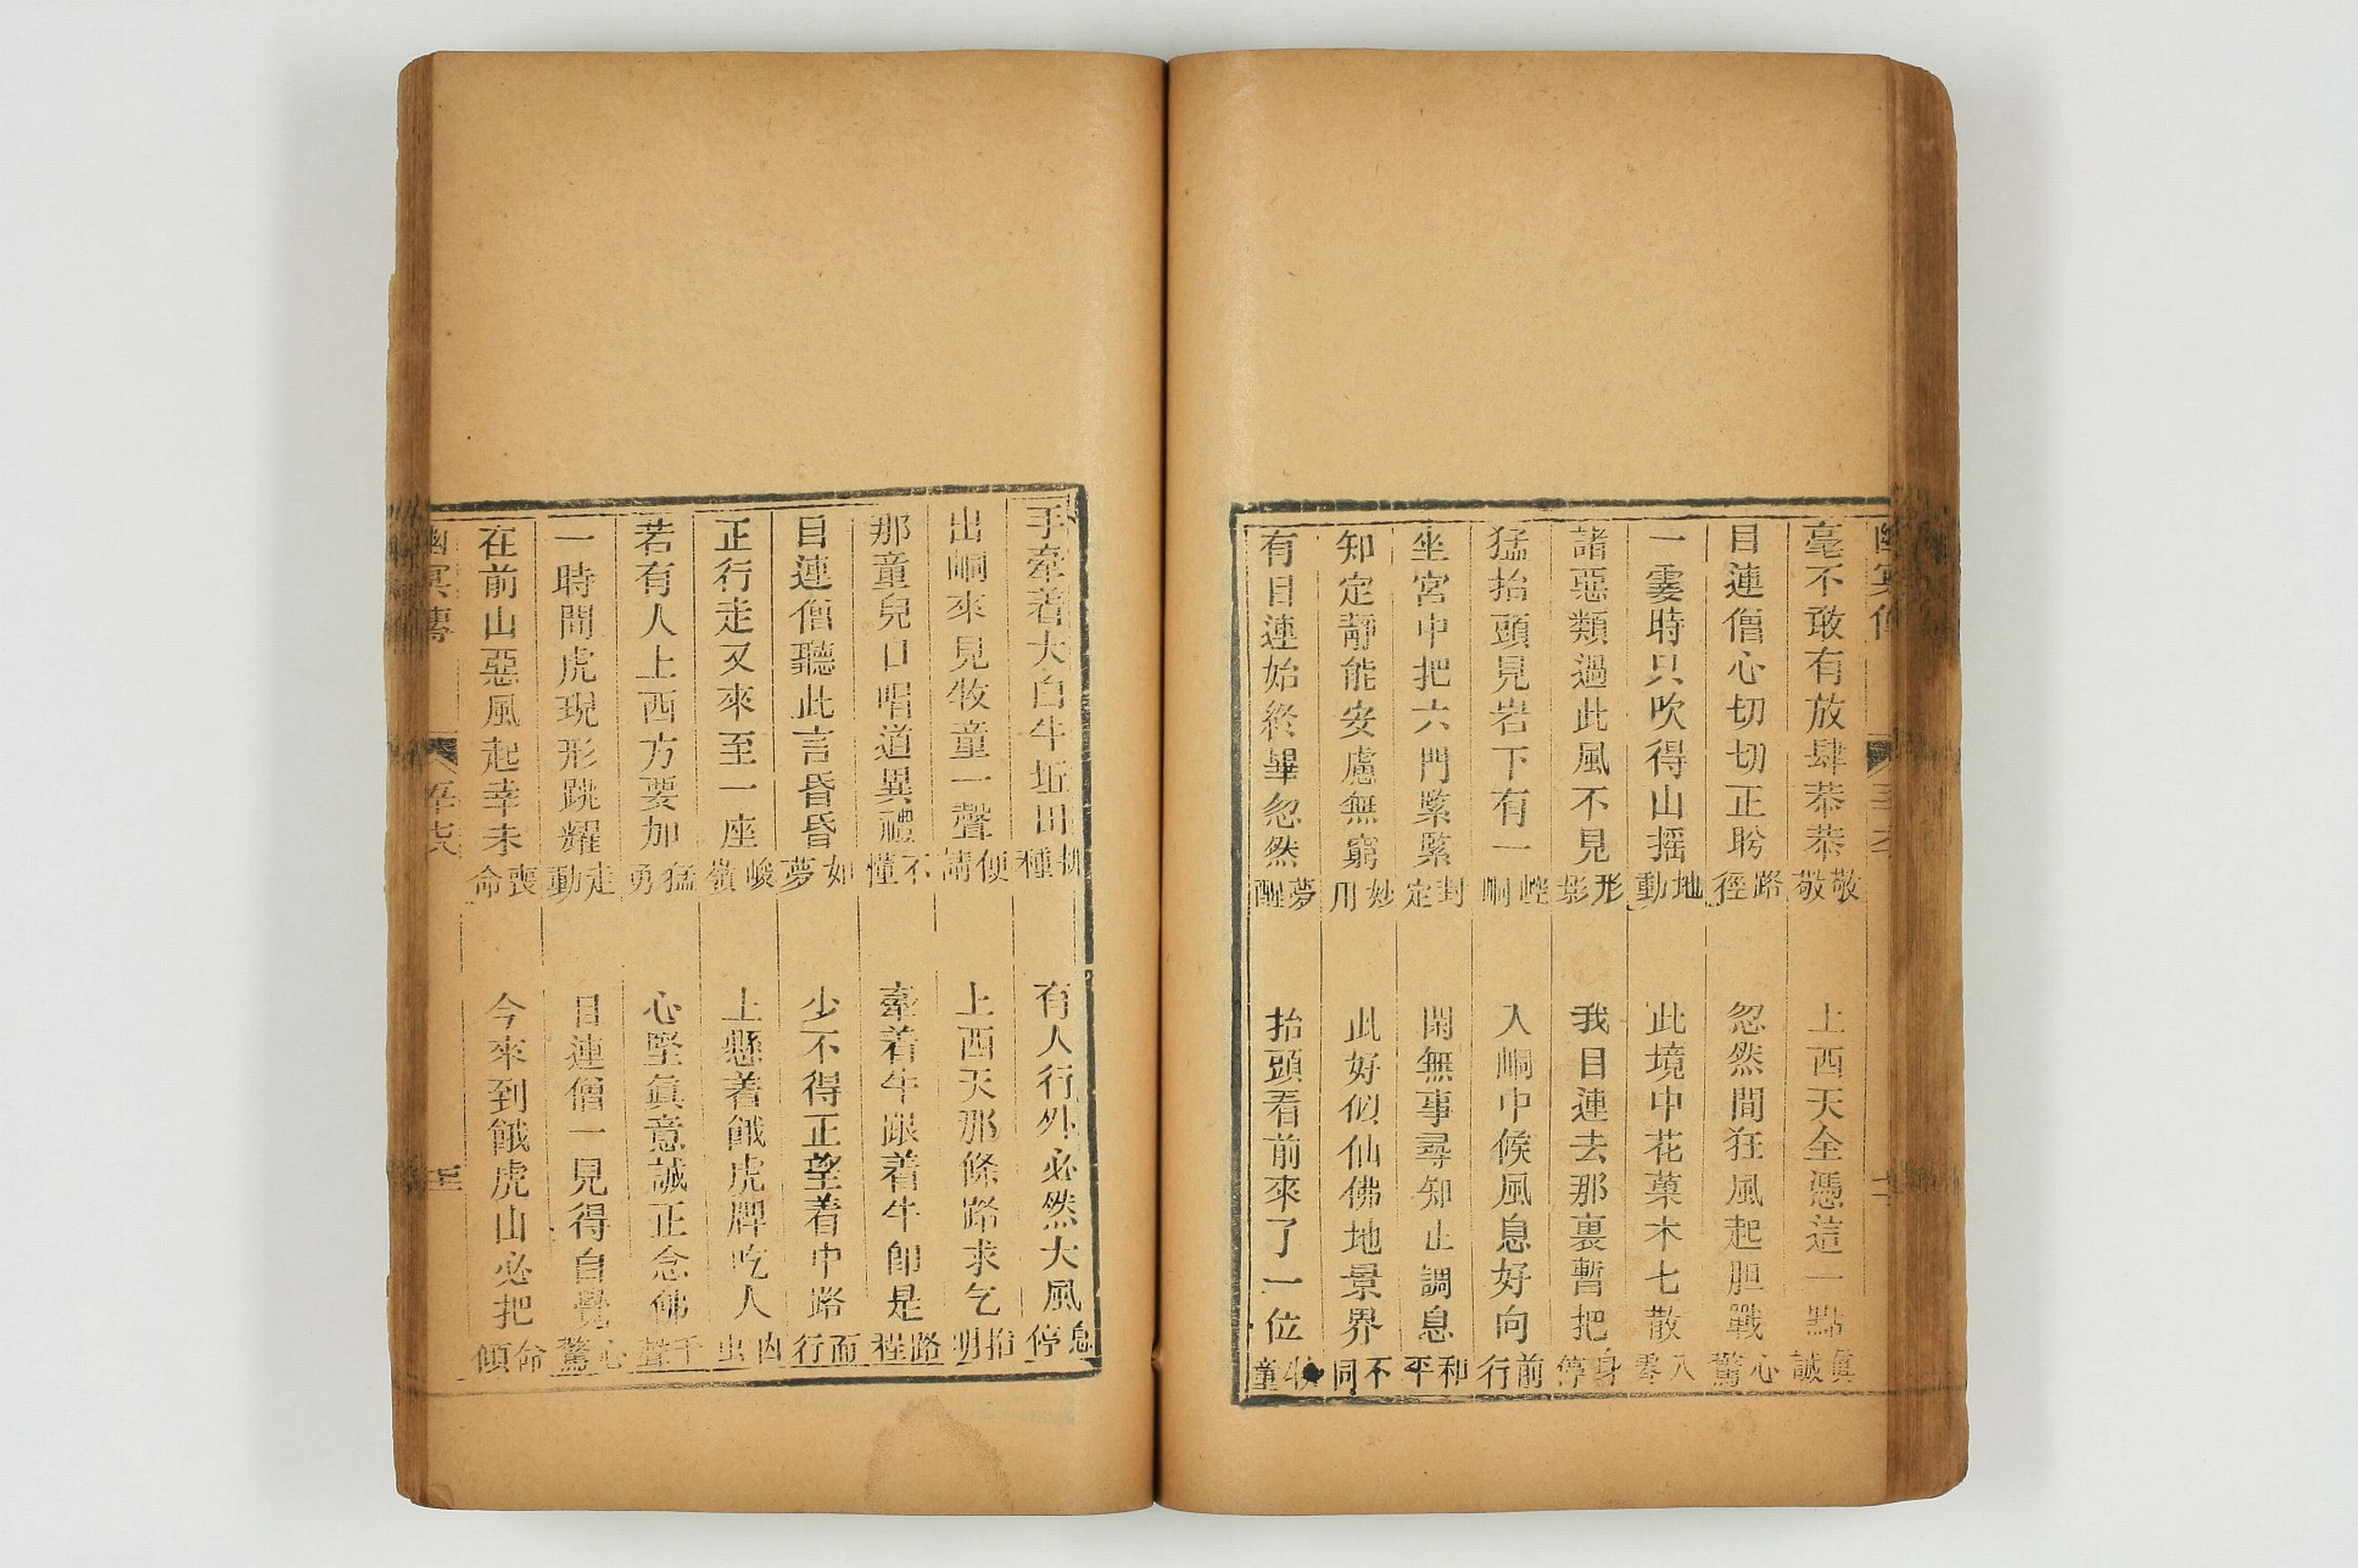 毫不敢有放肆恭恭敬敬　上西天全憑這一點眞誠
目連僧心切切正盻路徑　忽然間狂風起胆戰心驚
一霎時只吹得山摇地動　此境中花菓木七散八零
諸惡類過此風不見形影　我目連去那裏暫把身停
猛抬頭見岩下有一崆峒　入峒中候風息好向前行
坐宮中把六門緊緊封定　閑無事尋知止調息和平
知定靜能安慮無窮妙用　此好似仙佛地景界不同
有目連始終畢忽然夢醒　抬頭看前來了一位牧童
手牽着大白牛坵田種　有人行外必然大風息停
出峒來見牧童一聲便請　上西天那條路求乞指明
那童兒口唱道異禮不懂　牽着牛跟着牛卽是路程
目連僧聽此言昏昏如夢　少不得正望着中路而行
正行走又來至一座峻嶺　上懸着餓虎牌吃人凶虫
若有人上西方要加猛勇　心堅眞意誠正念佛千聲
一時間虎現形跳耀走動　目連僧一見得自覺心驚
在前山惡風起幸未喪命　今來到餓虎山必把命傾
幽冥傳